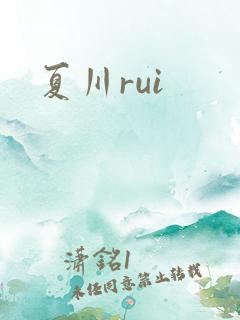 夏川rui
潇銘l
未经同意禁止转载